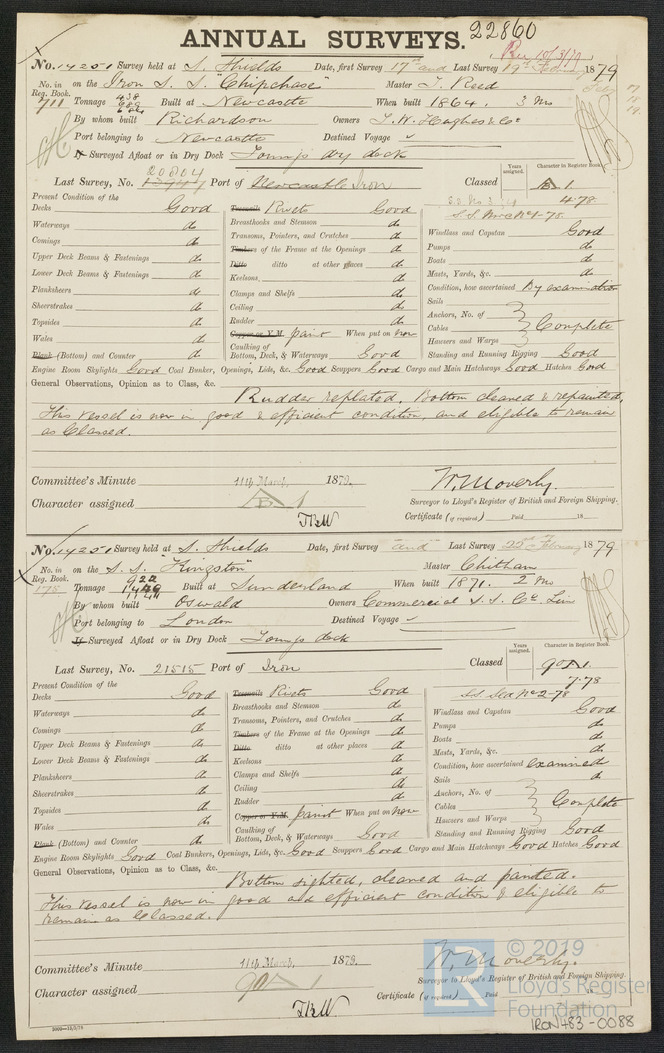 22860
ANNUAL SURVEYS.
Rec 10/3/79
No. 14251 Survey held at S. Shields Date, first Survey 17th and Last Survey 19th February 1879
No. in Reg. Book. 711 on the Iron S. S. "Chipchase" Master J. Reed
Tonnage 438 682 Built at Newcastle When built 1864. 3 Mo
By whom built Richardson Owners J. W. Hughes & Co
Port belonging to Newcastle Destined Voyage
If Surveyed Afloat or in Dry Dock Youngs dry dock
20804
Last Survey, No. Port of Newcastle Iron Classed
Years assigned. Character in Register Book.
A 1
4.78
S.S. Nwc No 1-75
Present Condition of the
Decks Good
Waterways do
Comings do
Upper Deck Beams & Fastenings do
Lower Deck Beams & Fastenings do
Planksheers do
Sheerstrakes do
Topsides do
Wales do
Plank (Bottom) and Counter do
Treenails Rivets Good
Breasthooks and Stemson do
Transoms, Pointers, and Crutches do
Timbers of the Frame at the Openings do
Ditto ditto at other places do
Keelsons do
Clamps and Shelfs do
Ceiling do
Rudder do
Copper or Y.M. paint When put on now
Caulking of Bottom, Deck, & Waterways Good
Windlass and Capstan Good
Pumps do
Boats do
Masts, Yards, &c. do
Condition, how ascertained By examination
Sails
Anchors, No. of
Cables Complete
Hawsers and Warps
Standing and Running Rigging Good
Engine Room Skylights Good Coal Bunker, Openings, Lids, &c. Good Scuppers Good Cargo and Main Hatchways Good Hatches Good
General Observations, Opinion as to Class, &c.
Rudder replated. Bottom cleaned & repainted.
This vessel is now in good & efficient condition, and eligible to remain
as Classed.
Committee's Minute 11th March 1879.
W. Moverly.
Surveyor to Lloyd's Register of British and Foreign Shipping.
Character assigned A 1
Certificate (if required) Paid 18
No. 14251 Survey held at S. Shields Date, first Survey and Last Survey 22nd February 1879
No. in Reg. Book. 178 on the S. S. "Kingston" Master Chittham
Tonnage 922 1449 Built at Sunderland When built 1871. 2 Mo
By whom built Oswald Owners Commercial S. S. Co. Lim
Port belonging to London Destined Voyage
If Surveyed Afloat or in Dry Dock Youngs dock
Last Survey, No. 21515 Port of Iron Classed
Years assigned. Character in Register Book.
90 A 1.
7.78
S.S. Sld No 2-78
Present Condition of the
Decks Good
Waterways do
Comings do
Upper Deck Beams & Fastenings do
Lower Deck Beams & Fastenings do
Planksheers do
Sheerstrakes do
Topsides do
Wales do
Plank (Bottom) and Counter do
Treenails Rivets Good
Breasthooks and Stemson do
Transoms, Pointers, and Crutches do
Timbers of the Frame at the Openings do
Ditto ditto at other places do
Keelsons do
Clamps and Shelfs do
Ceiling do
Rudder do
Copper or Y.M. paint When put on now
Caulking of Bottom, Deck, & Waterways Good
Windlass and Capstan Good
Pumps do
Boats do
Masts, Yards, &c. do
Condition, how ascertained examined
Sails do
Anchors, No. of
Cables Complete
Hawsers and Warps
Standing and Running Rigging Good
Engine Room Skylights Good Coal Bunkers, Openings, Lids, &c. Good Scuppers Good Cargo and Main Hatchways Good Hatches Good
General Observations, Opinion as to Class, &c.
Bottom sighted, cleaned and painted.
This vessel is now in good and efficient condition & eligible to
remain as Classed.
Committee's Minute 11th March, 1879.
W. Moverly.
Surveyor to Lloyd's Register of British and Foreign Shipping.
Character assigned 90 A 1
Certificate (if required) Paid 18
LR © 2019
Lloyd's Register
Foundation
IRON483-0088